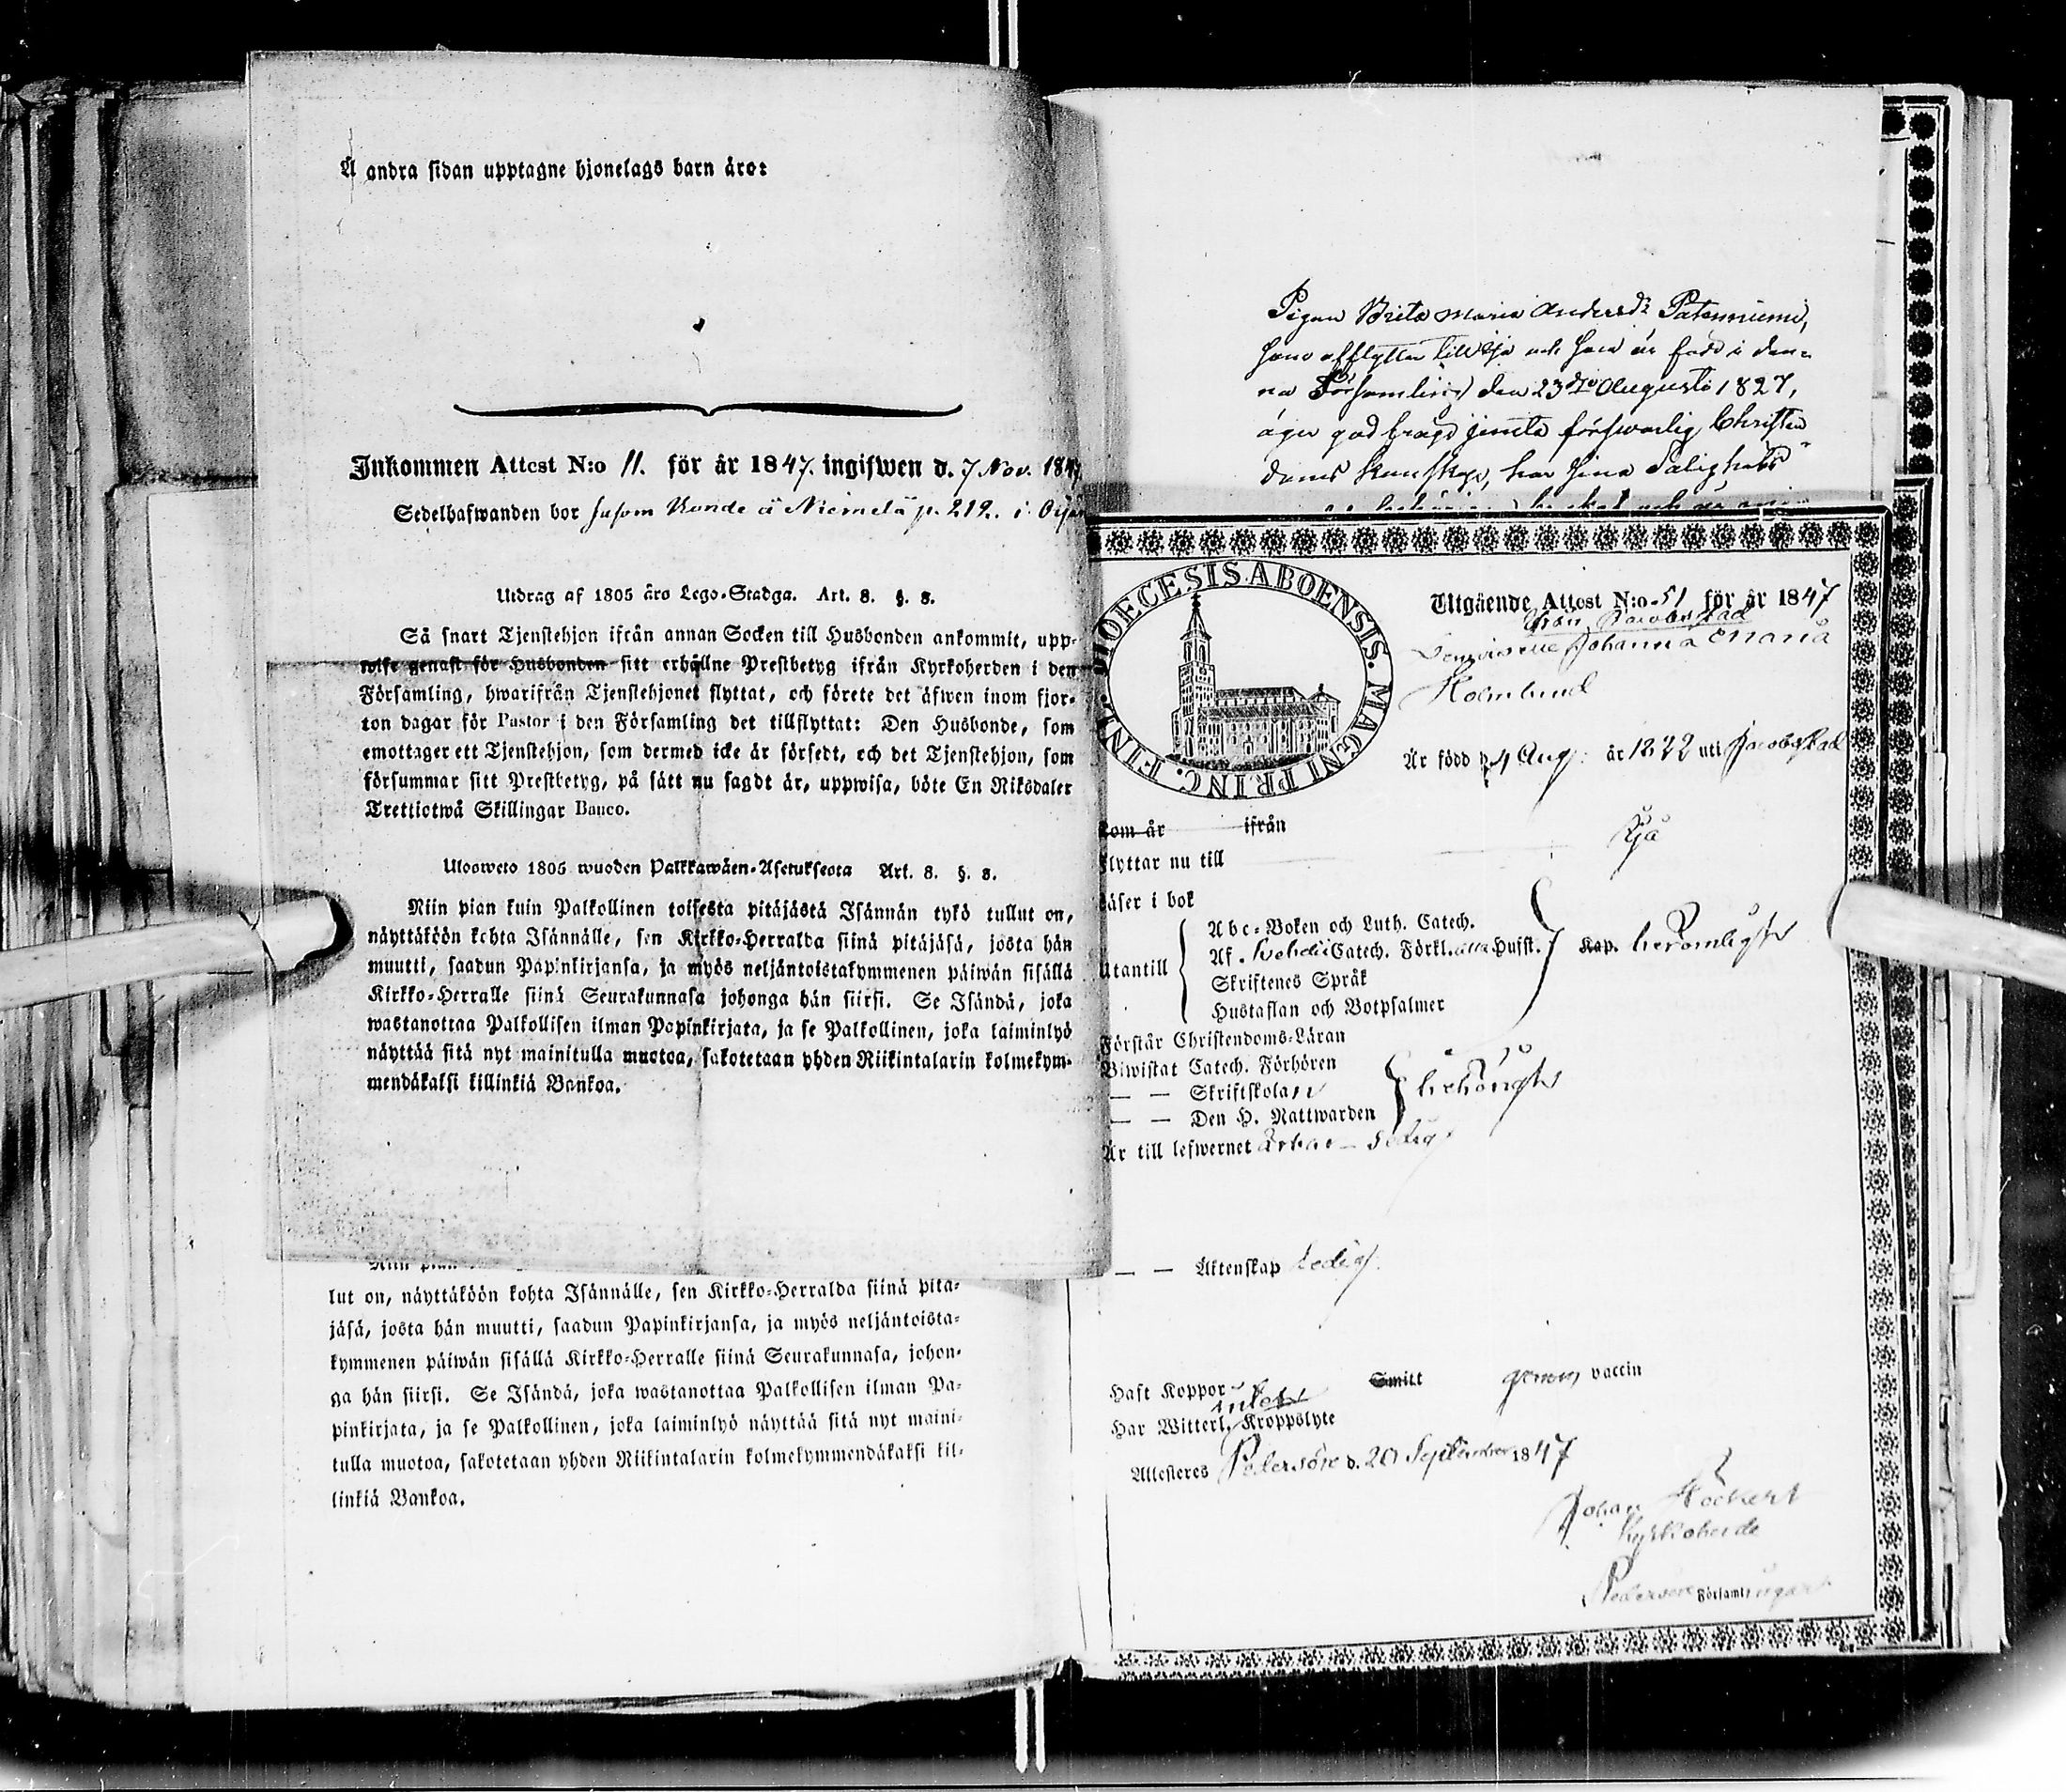 Å andra sidan upptagne hjonelags barn äro:
Inkommen Attest N:o 11. för år 1847. ingifwen d. 7 Nov. 1847
Sedelhafwanden bor såsom Kunde å Niemelä p. 212. i
Utdrag af 1805 års Lego-Stadga. Art. 8. §. 8.
Så snart Tjenstehjon ifrån annan Socken till Husbonden ankommit, upp-
wise genast för Husbonden sitt erhållne Prestbetyg ifrån Kyrkoherden i den
Församling, hwarifrån Tjenstehjonet flyttat, och förete det äfwen inom fjor-
ton dagar för Pastor i den Församling det tillflyttat: Den Husbonde, som
emottager ett Tjenstehjon, som dermed icke är försedt, och det Tjenstehjon, som
försummar sitt Prestbetyg, på sätt nu sagdt är, uppwisa, böte En Riksdaler
Trettiotwå Skillingar Banco.
Ulosweto 1805 wuoden Palkkawäen-Asetuksesta Art. 8. §. 8.
Niin pian kuin Palkollinen toisesta pitäjästä Isännän tykö tullut on,
näyttäköön kohta Isännälle, sen Kirkko-Herralda siinä pitäjäsä, josta hän
muutti, saadun Papinkirjansa, ja myös neljäntoistakymmenen päiwän sisällä
Kirkko-Herralle siinä Seurakunnasa johonga hän siirsi. Se Isändä, joka
wastanottaa Palkollisen ilman Papinkirjata, ja se Palkollinen, joka laiminlyö
näyttää sitä nyt mainitulla muotoa, sakotetaan yhden Riikintalarin kolmekym-
mendäkaksi killinkiä Bankoa.
Niin pian
lut on, näyttäköön kohta Isännälle, sen Kirkko-Herralda siinä pitä-
jäsä, josta hän muutti, saadun Papinkirjansa, ja myös neljäntoista-
kymmenen päiwän sisällä Kirkko-Herralle siinä Seurakunnasa, johon-
ga hän siirsi. Se Isändä, joka wastanottaa Palkollisen ilman Pa-
pinkirjata, ja se Palkollinen, joka laiminlyö näyttää sitä nyt maini-
tulla muotoa, sakotetaan yhden Riikintalarin kolmekymmendäkaksi kil-
linkiä Bankoa.
Pigan Brita Maria Andersdr Patanniemi,
som afflyttar till Ijo och som är född i den-
na Församling den 23dje Augusti 1827,
äger god frägd jemte förswarlig Christen
doms kunskap, har sina Salighets
DIOECESIS ABOENSIS. MAGNI PRINC. FINL.
Utgående Attest N:o 51 för år 1847
från Jacobstad
Demoiselle Johanna Maria
Holmlund
Är född d. 4 Aug: år 1822 uti Jacobstad
kom år ifrån
Flyttar nu till Ijå
Läser i bok
Utantill
Abc-Boken och Luth. Catech.
Af Svebelii Catech. Förkl. alla Hufst.
Skriftenes Språk
Hustaflan och Botpsalmer
Kap. berömligt
Förstår Christendoms-Läran
Biwistat Catech. Förhören
— — Skriftskolan
— — Den H. Nattwarden
behörigt
Är till lefwernet ärbar — sedig
— — Äktenskap Ledig.
Haft Koppor Smitt genom vaccin
intet
Har Witterl. Kroppslyte
Attesteres Pedersöre d. 20 September 1847
Johan
Kyrkoherde
Pedersöre Församlingar